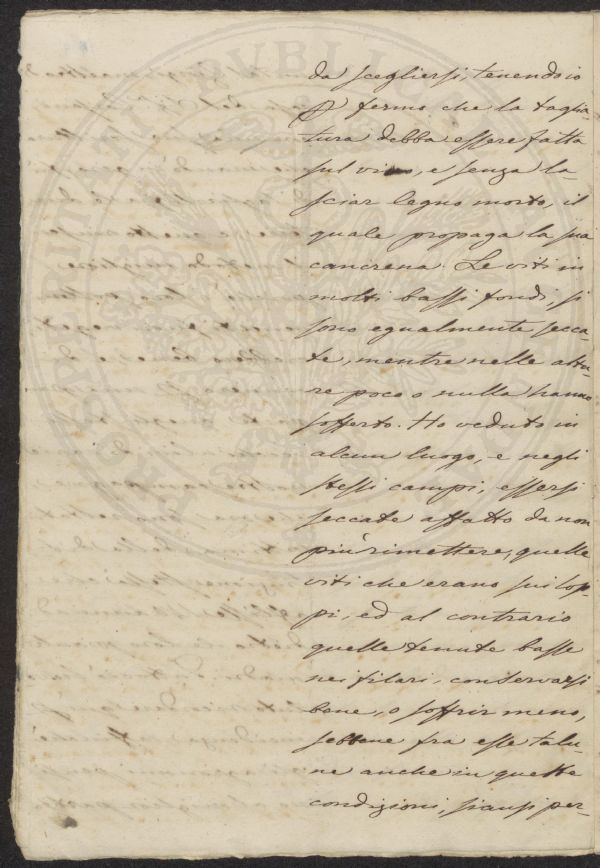 da scegliersi, tenendo io
P fermo che la taglia-
tura debba essere fatta
sul vivo, e senza la-
sciar legno morto, il
quale propaga la sua
cancrena. Le viti in
molti bassi fondi, si
sono egualmente secca-
te, mentre nelle altu-
re poco o nulla hanno
sofferto. Ho veduto in
alcun luogo, e negli
stessi campi, essersi
seccate affatto da non
più rimettere, quelle
viti che erano sui lop-
pi, ed al contrario
quelle tenute basse
nei filari, conservarsi
bene, o soffrir meno,
sebbene fra esse talu-
ne anche in queste
condizioni, siansi per-